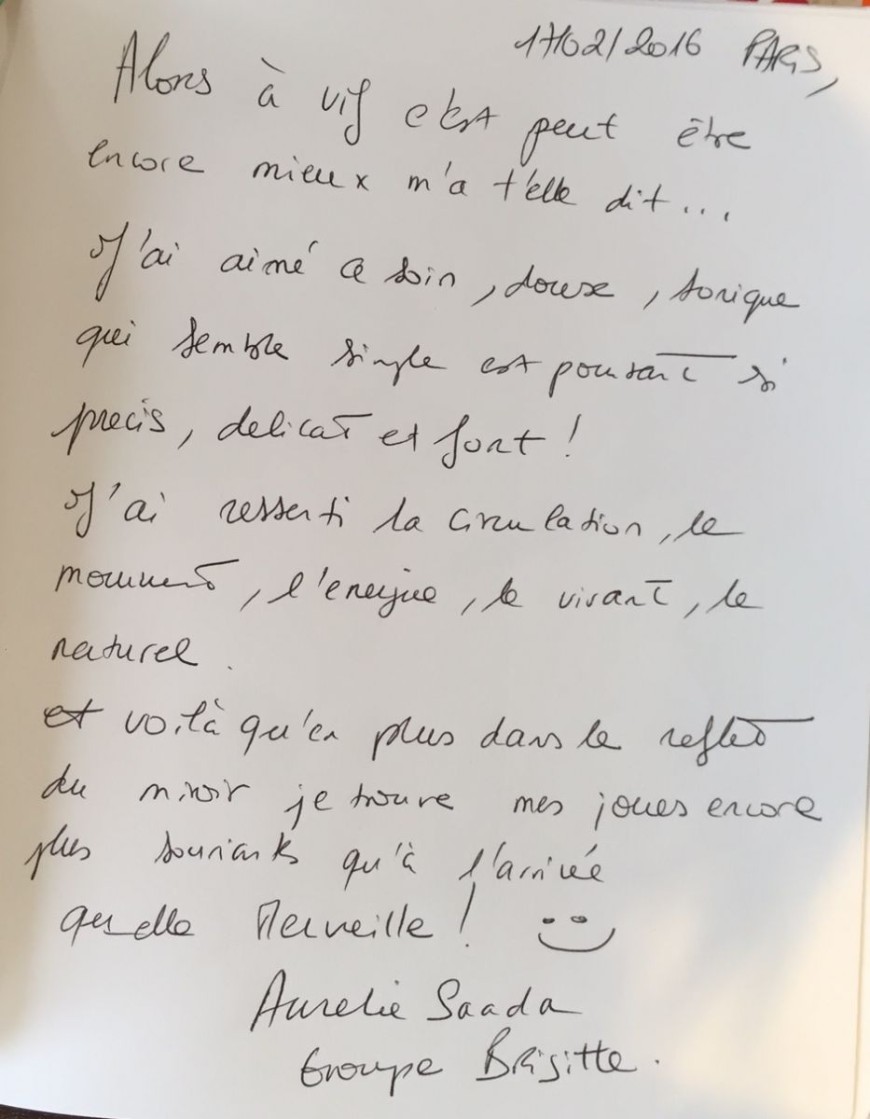 17/02/2016 PARIS,
Alors à vif c'est peut être
encore mieux m'a t'elle dit...
J'ai aimé ce soin, doux, tonique
qui semble simple est pourtant si
precis, delicat et fort !
J'ai ressenti la circulation, le
mouvement, l'energie, le vivant, le
naturel.
et voilà qu'en plus dans le reflet
du miroir je trouve mes joues encore
plus souriants qu'à l'arrivée
quelle Merveille !
Aurelie Saada
Groupe BRigitte.